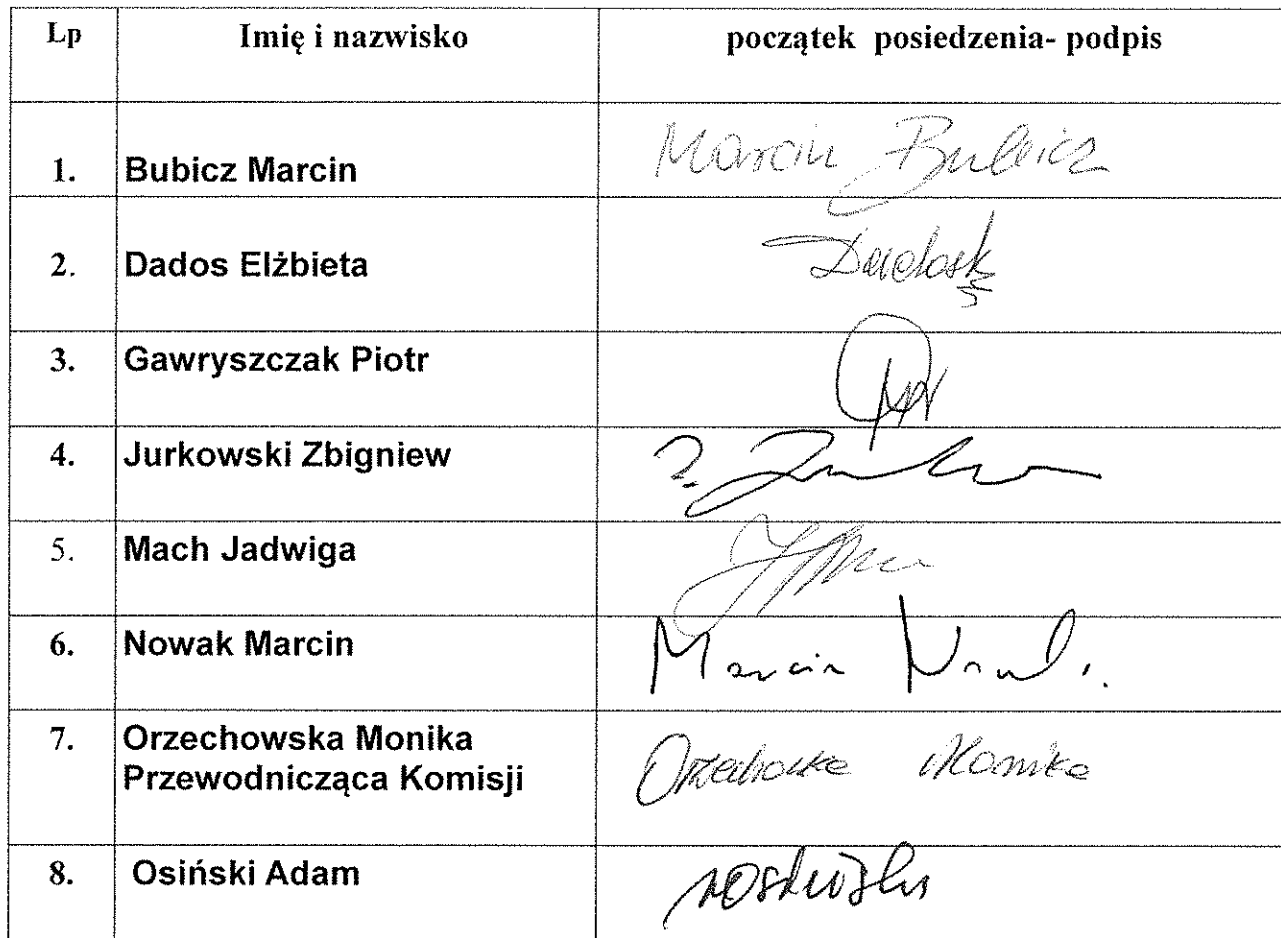 Lp Imię i nazwisko początek posiedzenia- podpis
1. Bubicz Marcin Marcin Bubicz
2. Dados Elżbieta
3. Gawryszczak Piotr
4. Jurkowski Zbigniew
5. Mach Jadwiga
6. Nowak Marcin Marcin
7. Orzechowska Monika
Przewodnicząca Komisji Monika
8. Osiński Adam